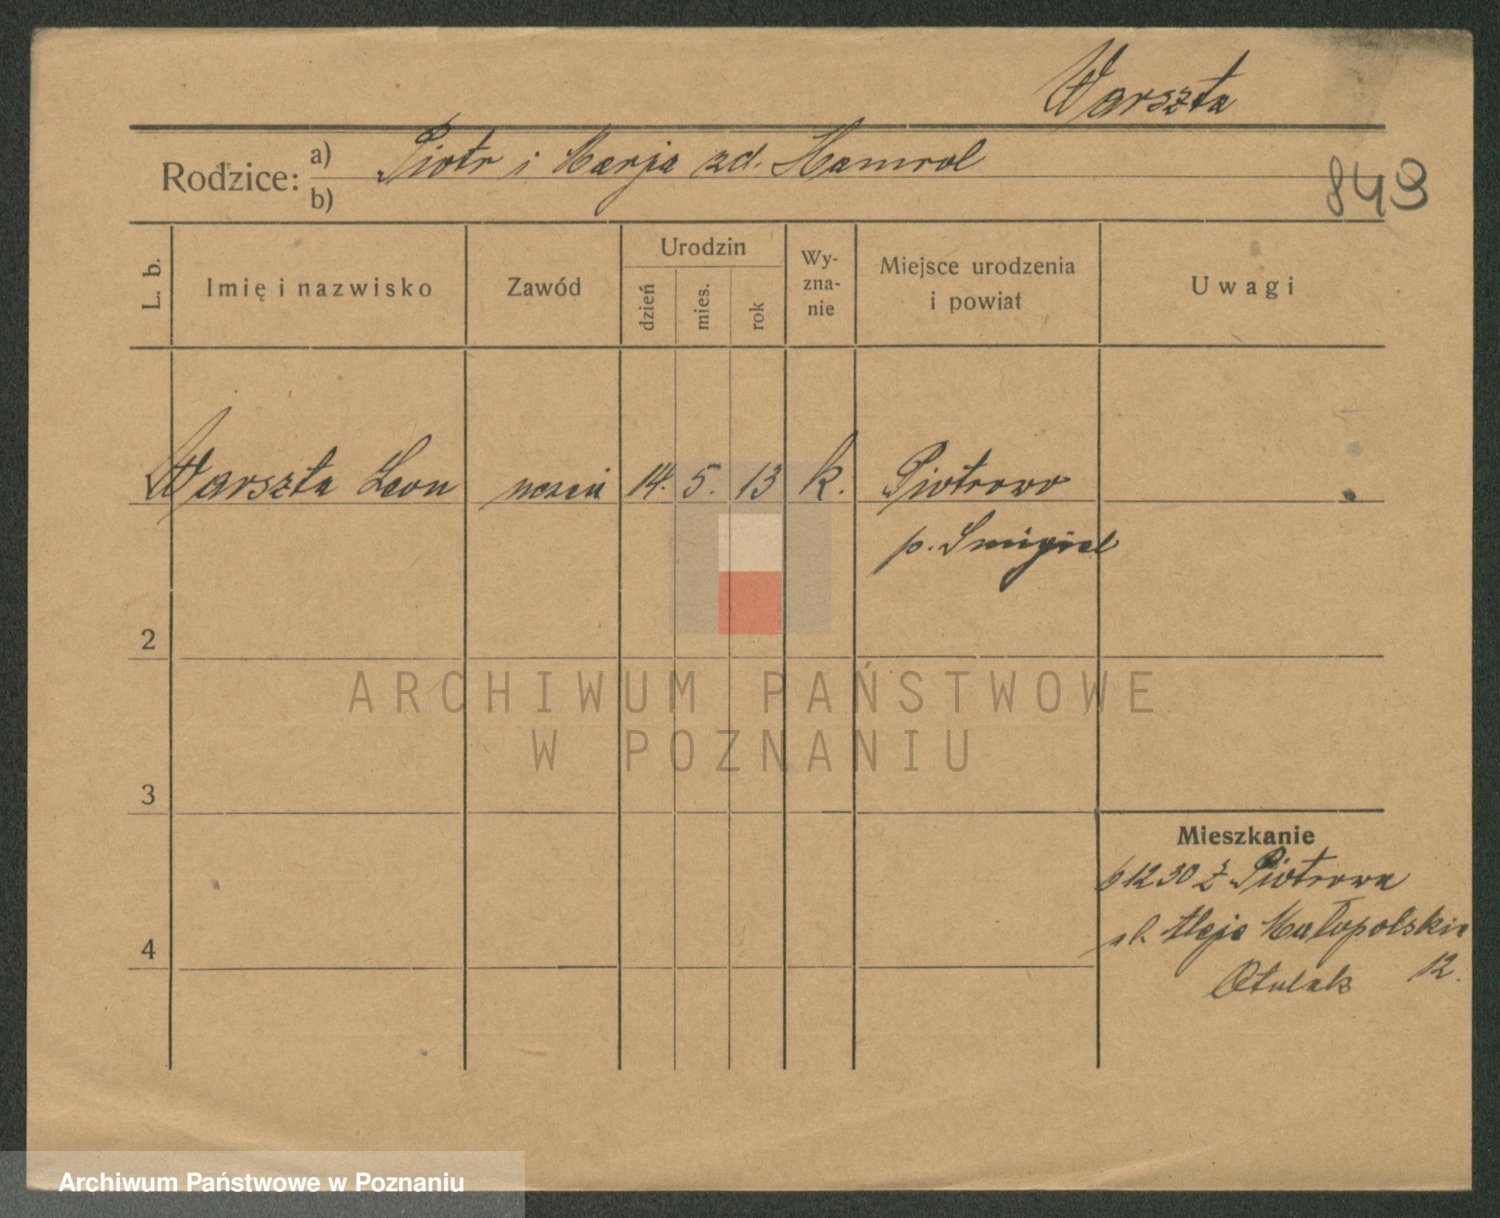 Warszta
Rodzice: a) Piotr i Marja zd. Hamrol
b)
843
L. b.
Imię i nazwisko
Zawód
Urodzin
dzień
mies.
rok
Wy-
zna-
nie
Miejsce urodzenia
i powiat
Uwagi
Warszta Leon uczeń 14. 5. 13 k. Piotrowo
p. Smigiel
2
ARCHIWUM PAŃSTWOWE
W POZNANIU
3
Mieszkanie
12 30 z Piotrowa
ul. Aleje Małopolskie
4
12.
Otulak
Archiwum Państwowe w Poznaniu